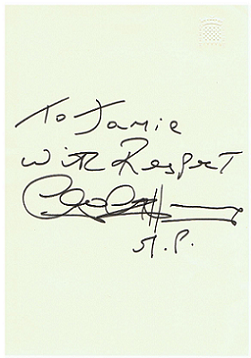 To Jamie
with Respect
M.P.